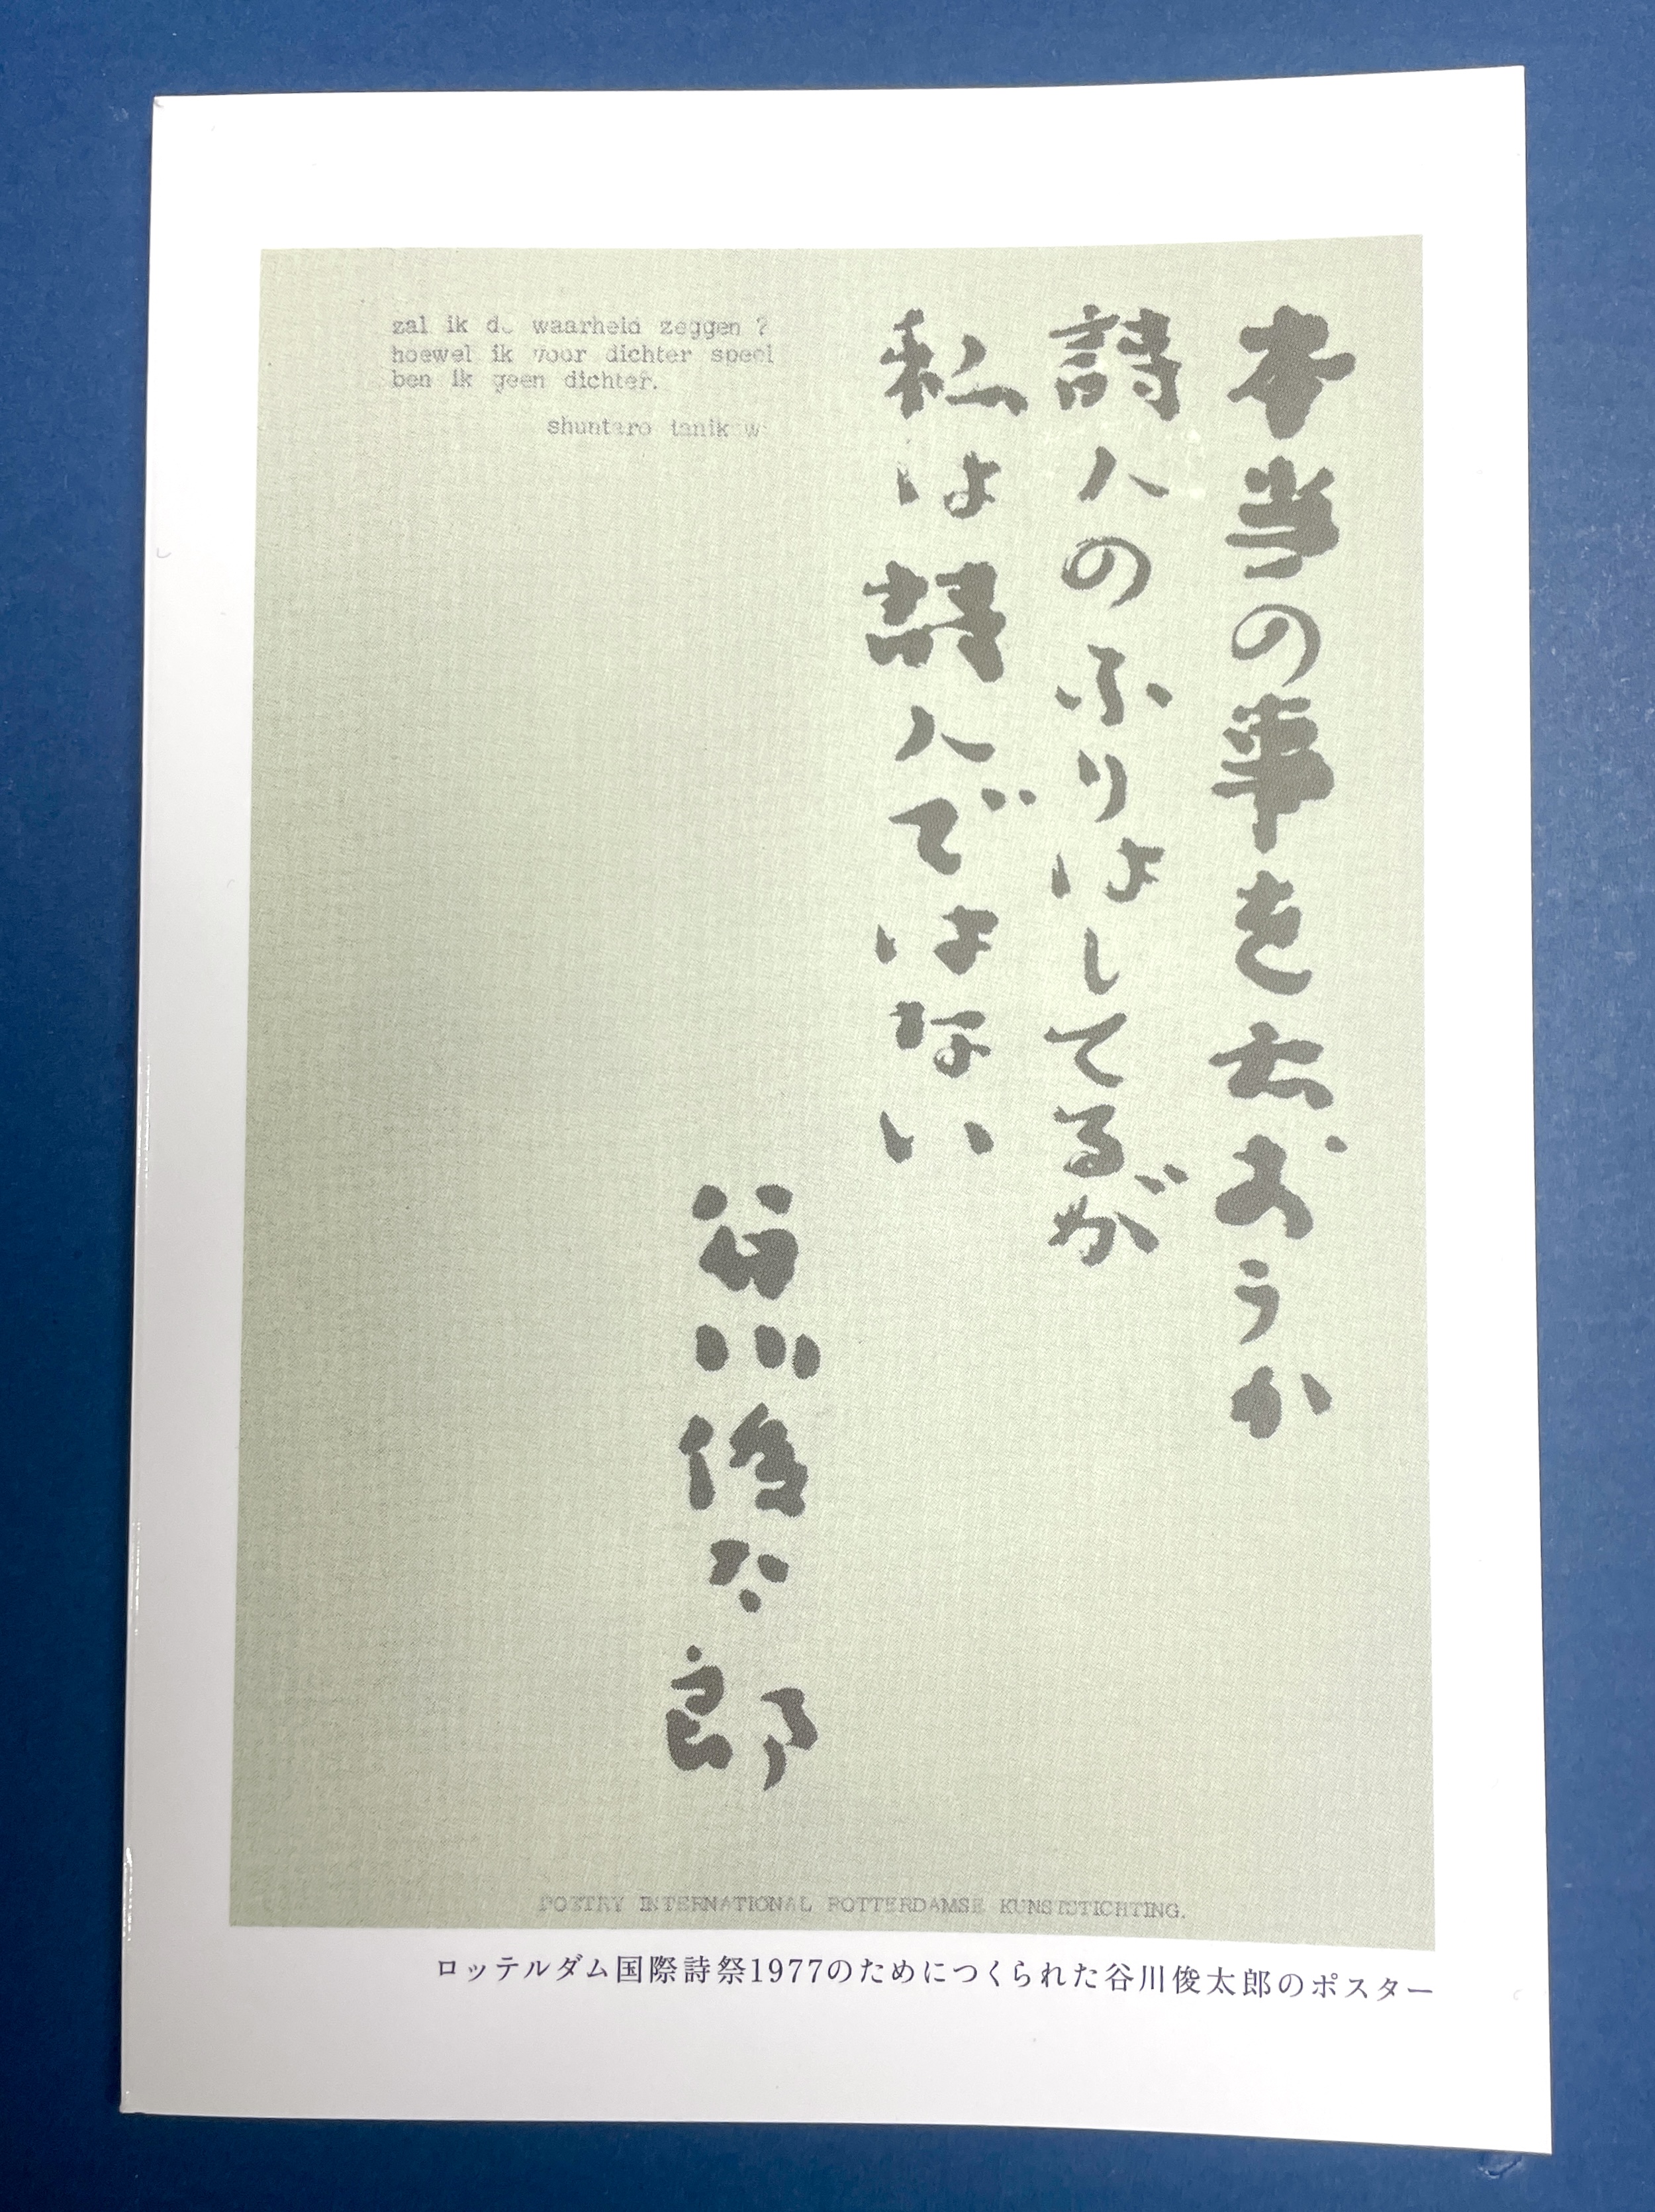 本当の事を云おうか
詩人のふりはしてるが
私は詩人ではない
谷川俊太郎
zal ik de waarheid zeggen ?
hoewel ik voor dichter speel
ben ik geen dichter.
shuntaro
POETRY INTERNATIONAL ROTTERDAMSE KUNSTSTICHTING.
ロッテルダム国際詩祭1977のためにつくられた谷川俊太郎のポスター